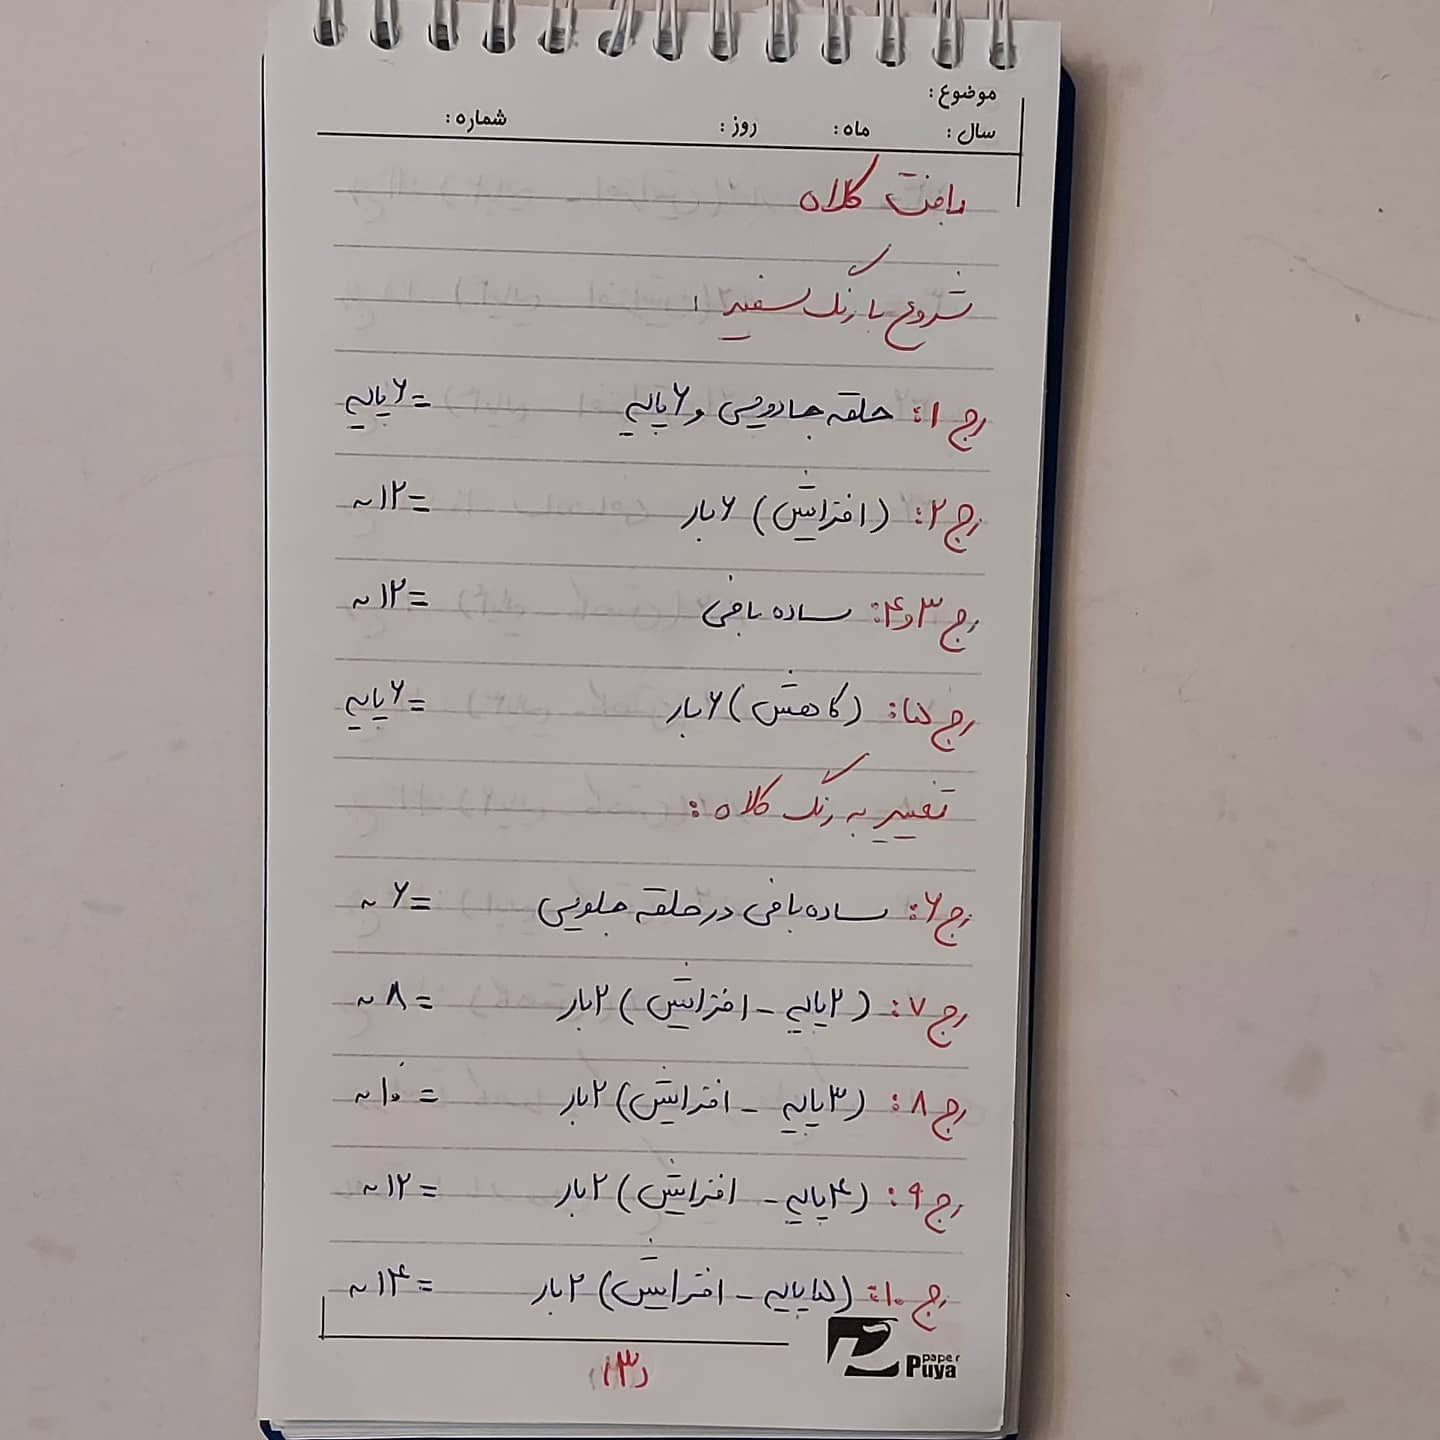 موضوع :
سال : ماه : روز : شماره :
بافت کلاه
شروع با رنگ سفید :
رج ۱: حلقه جادویی و ۶ پایه = ۶ پایه
رج ۲: (افزایش) ۶ بار = ۱۲ ~
رج ۳ و ۴: ساده بافی = ۱۲ ~
رج ۵: (کاهش) ۶ بار = ۶ پایه
تغییر به رنگ کلاه :
رج ۶: ساده بافی در حلقه جلویی = ۶ ~
رج ۷: (۲ پایه - افزایش) ۲ بار = ۸ ~
رج ۸: (۳ پایه - افزایش) ۲ بار = ۱۰ ~
رج ۹: (۴ پایه - افزایش) ۲ بار = ۱۲ ~
رج ۱۰: (۵ پایه - افزایش) ۲ بار = ۱۴ ~
paper
Puya
(۳)